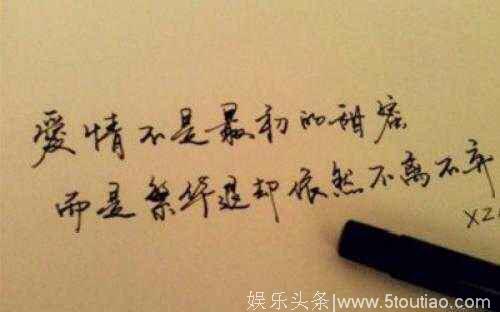 愛情不是最初的甜密
而是繁华退却依然不离不弃
xz
娱乐头条/www.5toutiao.com